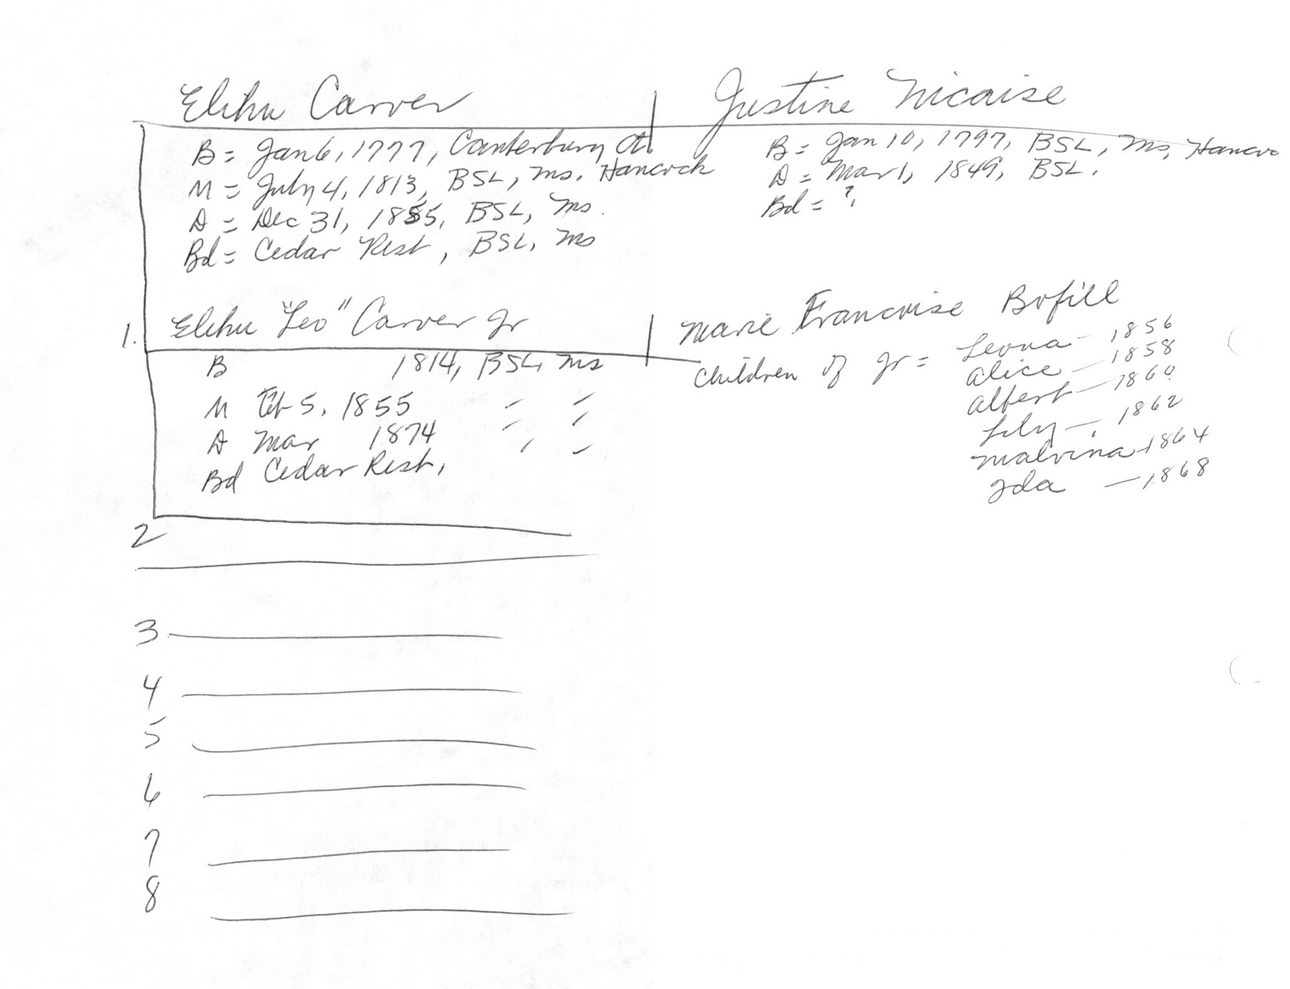 Elihu Carver
B = Jan 6, 1777, Canterbury Ct.
M = July 4, 1813, BSL, Ms. Hancock
D = Dec 31, 1855, BSL, Ms.
Bd = Cedar Rest, BSL, Ms
Justine Nicaise
B = Jan 10, 1797, BSL, Ms, Hanco
D = Mar 1, 1849, BSL.
Bd = ?.
1. Elihu "Leo" Carver Jr
B 1814, BSL, Ms
M Feb 5, 1855 " "
D Mar 1874 " "
Bd Cedar Rest,
Marie Francoise Bofill
Children of Jr = Leona - 1856
Alice - 1858
Albert - 1860
Lily - 1862
Malvina - 1864
Ida - 1868
2
3
4
5
6
7
8